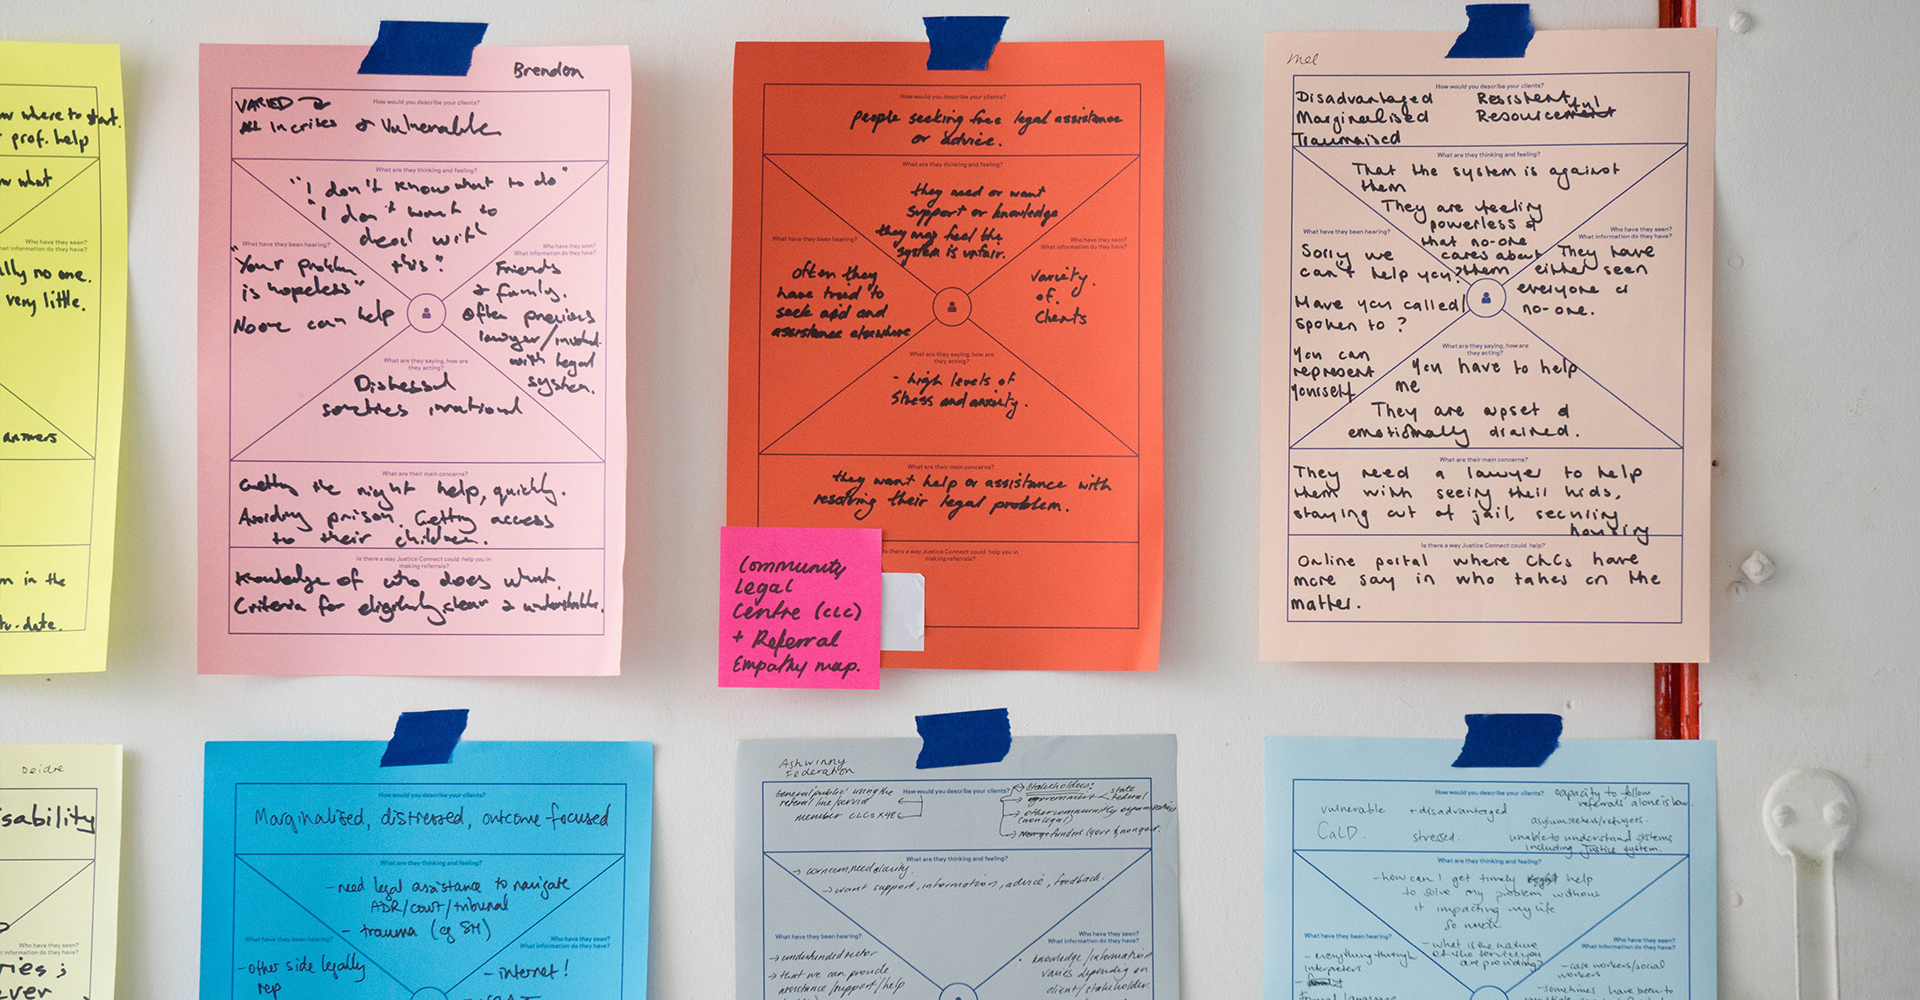 w where to start.
prof. help
w what
Who have they seen?
What information do they have?
lly no one.
very little.
answers
m in the
to-date.
Brendon
How would you describe your clients?
VARIED
All In crises & Vulnerable
What are they thinking and feeling?
"I don't know what to do"
"I don't want to
deal with
this"
What have they been hearing?
"Your problem
is hopeless"
No one can help
Who have they seen?
What information do they have?
Friends
& family.
Often previous
lawyer/involvd.
with legal
system.
What are they saying, how are
they acting?
Distressed
sometimes irrational
What are their main concerns?
Getting the right help, quickly.
Avoiding prison. Getting access
to their children.
Is there a way Justice Connect could help you in
making referrals?
Knowledge of who does what.
Criteria for eligibility clear & understandable.
How would you describe your clients?
people seeking free legal assistance
or advice.
What are they thinking and feeling?
they need or want
support or knowledge
they may feel the
system is unfair.
What have they been hearing?
often they
have tried to
seek aid and
assistance elsewhere
Who have they seen?
What information do they have?
Variety
of
Clients
What are they saying, how are
they acting?
- high levels of
stress and anxiety.
What are their main concerns?
they want help or assistance with
resolving their legal problem.
Is there a way Justice Connect could help you in
making referrals?
Community
Legal
Centre (CLC)
+ Referral
Empathy map.
Mel
How would you describe your clients?
Disadvantaged
Marginalised
Traumatised
Resistent
Resourceful
What are they thinking and feeling?
That the system is against
them
They are feeling
powerless &
that no-one
cares about
them
What have they been hearing?
Sorry we
can't help you?
Have you called/
spoken to?
You can
represent
yourself
Who have they seen?
What information do they have?
They have
either seen
everyone or
no-one.
What are they saying, how are
they acting?
You have to help
me
They are upset &
emotionally drained.
What are their main concerns?
They need a lawyer to help
them with seeing their kids,
staying out of jail, securing
housing
Is there a way Justice Connect could help?
Online portal where CLCs have
more say in who takes on the
matter.
Deidre
sability
Who have they seen?
What information do they have?
ries;
ever
How would you describe your clients?
Marginalised, distressed, outcome-focused
What are they thinking and feeling?
- need legal assistance to navigate
ADR/court/tribunal
- trauma (eg SH)
What have they been hearing?
- other side legally
rep
Who have they seen?
What information do they have?
- internet!
Ashwinny
Federation
How would you describe your clients?
General public using the
referral line/service
member CLCs x 48
Stakeholders:
government
state
federal
other community organisations
(non legal)
funders (govt & nongovt.
What are they thinking and feeling?
→ concern, need clarity.
→ want support, information, advice, feedback.
What have they been hearing?
→ underfunded sector
→ that we can provide
assistance/support/help
Who have they seen?
What information do they have?
knowledge/information
varies depending on
client/stakeholder
How would you describe your clients?
vulnerable + disadvantaged
CaLD. stressed.
capacity to follow
referrals alone is low.
asylum seekers/refugees.
unable to understand systems
including justice system.
What are they thinking and feeling?
- how can I get timely help
to solve my problem without
it impacting my life
so much
- what is the nature
of the service you
are providing?
What have they been hearing?
- everything through
interpreters
- formal language
Who have they seen?
What information do they have?
- case workers/social
workers
- sometimes have been to